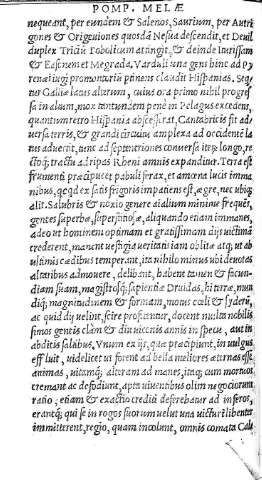 POMP. MELÆ
nequeant, per eundem & Salenos, Saurium, per Autri
gones & Origeuiones quosdã Nesua descendit, et Deuil
duplex Tricium Tobolicum attingit, & deinde Iturissam
& Easonem et Magrada, Varduli una gens hinc ad P
renæi iugi promontoriũ pertinens claudit Hispanias. Seq
tur Galliæ latus alterum, cuius ora primo nihil progres
sa in altum, mox tantundem penè in Pelagus excedens,
quantum retro Hispania abscesserat, Cantabricis fit ad
uersa terris, & grandi circuitu amplexa ad occidentẽ la
tus aduertit, tunc ad septentriones conuersa iterũ longo, re
ctoq; tractu ad ripas Rheni amnis expanditur. Terra est
frumenti præcipue et pabuli ferax, et amœna lucis imma
nibus, qcqd ex satis frigoris impatiens est, ægre, nec ubiq
alit. Salubris & noxio genere aĩalium minime frequẽs,
gentes superbæ, supstitiosæ, aliquando etiam immanes,
adeo ut hominem optimam et gratissimam dijs uictimã
crederent, manent uestigia feritatis iam abolitæ atq; ut ab
ultimis cædibus temperant, ita nihilo minus ubi deuotos
altaribus admouere, delibant, habent tamen & facun
diam suam, magistrosq; sapientiæ Druidas, hi terræ, mun
diq; magnitudinem & formam, motus cœli & syderũ,
ac quid dij uelint, scire profitentur, docent multa nobilis
simos gentis clàm & diu uicenis annis in specu, aut in
abditis saltibus. Vnum ex ijs, quæ præcipiunt, in uulgus
effluit, uidelicet ut forent ad bella meliores æternas esse
animas, uitamq; alteram ad manes, itaq; cum mortuos
cremant ac defodiunt, apta uiuentibus olim negociorum
ratio, etiam & exactio crediti deferebatur ad inferos,
erantq; qui se in rogos suorum uelut una uicturi libenter
immitterent, regio, quam incolunt, omnis comata Gall